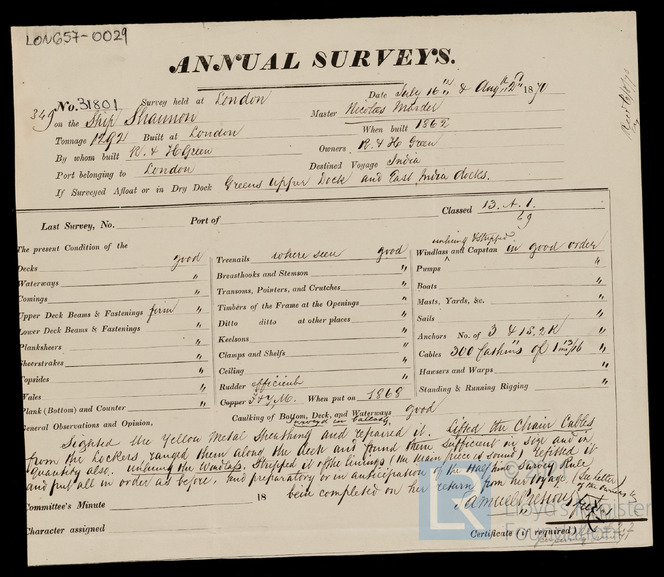 LON657-0029
ANNUAL SURVEYS.
No. 31801 Survey held at London Date July 16th & Augst 2nd 1870
349 on the Ship Shannon Master Nicolas Marder
Tonnage 1292 Built at London When built 1862
By whom built R. & H Green Owners R. & H Green
Port belonging to London Destined Voyage India
If Surveyed Afloat or in Dry Dock Greens upper Dock and East India docks.
Last Survey, No. Port of Classed 13. A. 1. 69
The present Condition of the
Decks good
Waterways "
Comings "
Upper Deck Beams & Fastenings firm "
Lower Deck Beams & Fastenings "
Planksheers "
Sheerstrakes "
Topsides "
Wales "
Plank (Bottom) and Counter "
Treenails where seen good
Breasthooks and Stemson "
Transoms, Pointers, and Crutches "
Timbers of the Frame at the Openings "
Ditto ditto at other places "
Keelsons "
Clamps and Shelfs "
Ceiling "
Rudder efficient
Copper F & Y. M. When put on 1868
Caulking of Bottom, Deck, and Waterways good
unhung & stripped
Windlass and Capstan in good order
Pumps "
Boats "
Masts, Yards, &c. "
Sails "
Anchors No. of 3 & 1S. 2K "
Cables 300 Fathms of 1 13/16 "
Hawsers and Warps "
Standing & Running Rigging "
General Observations and Opinion,
Sighted the Yellow Metal Sheathing and repaired it. Lifted the Chain Cables
from the Lockers ranged them along the deck and found them sufficient in size and in
quantity also. unhung the Windlass. Stripped it of the linings (the main piece is sound) refitted it
and put all in order as before, and preparatory or in anticipation of the Half time Survey Rule
been completed on her return from her voyage (See letter
of the owners
Committee's Minute 18
Samuel Pretious
Character assigned
Certificate (if required)
Lloyd's Register
Foundation